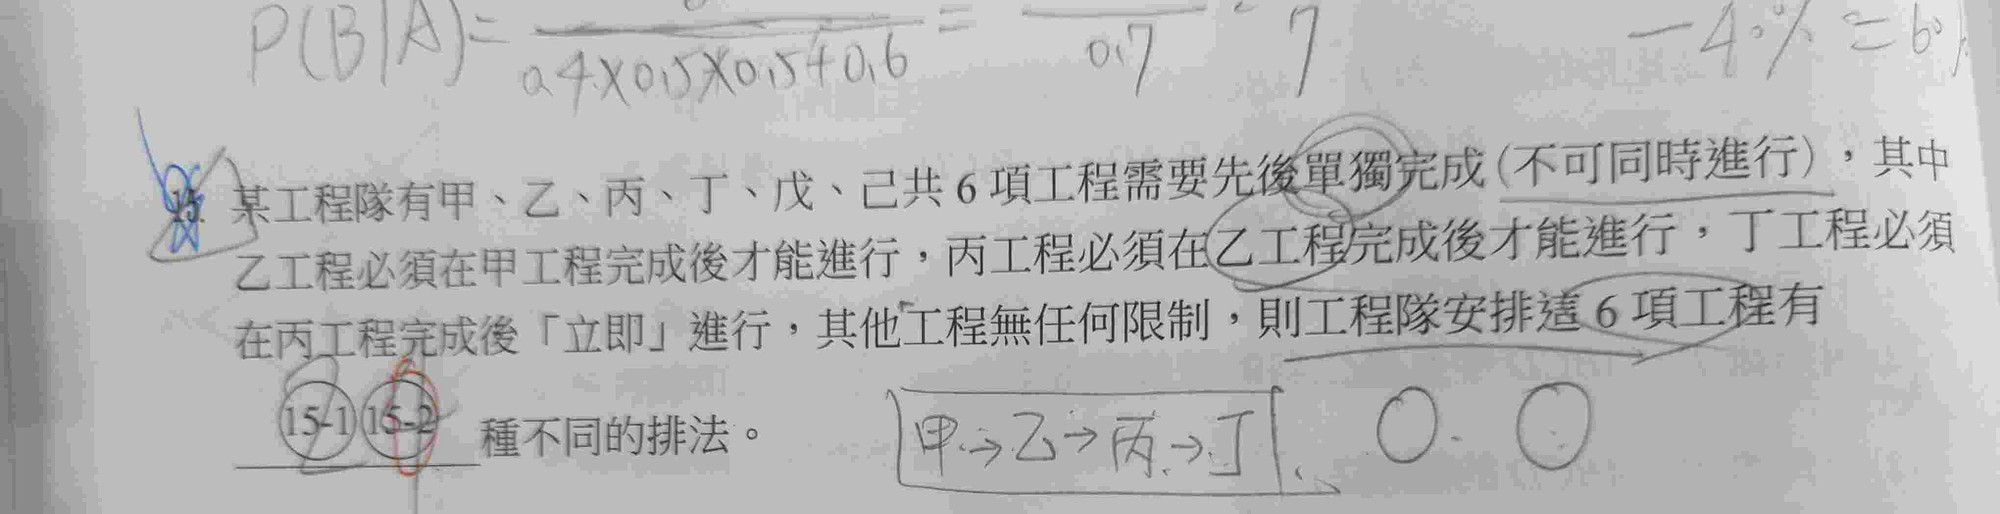 P(B|A)= 0.4×0.5×0.5+0.6 = 0.7 7 -40% = 60%
15. 某工程隊有甲、乙、丙、丁、戊、己共 6 項工程需要先後單獨完成(不可同時進行)，其中
乙工程必須在甲工程完成後才能進行，丙工程必須在乙工程完成後才能進行，丁工程必須
在丙工程完成後「立即」進行，其他工程無任何限制，則工程隊安排這 6 項工程有
15-1 15-2 種不同的排法。
甲→乙→丙→丁